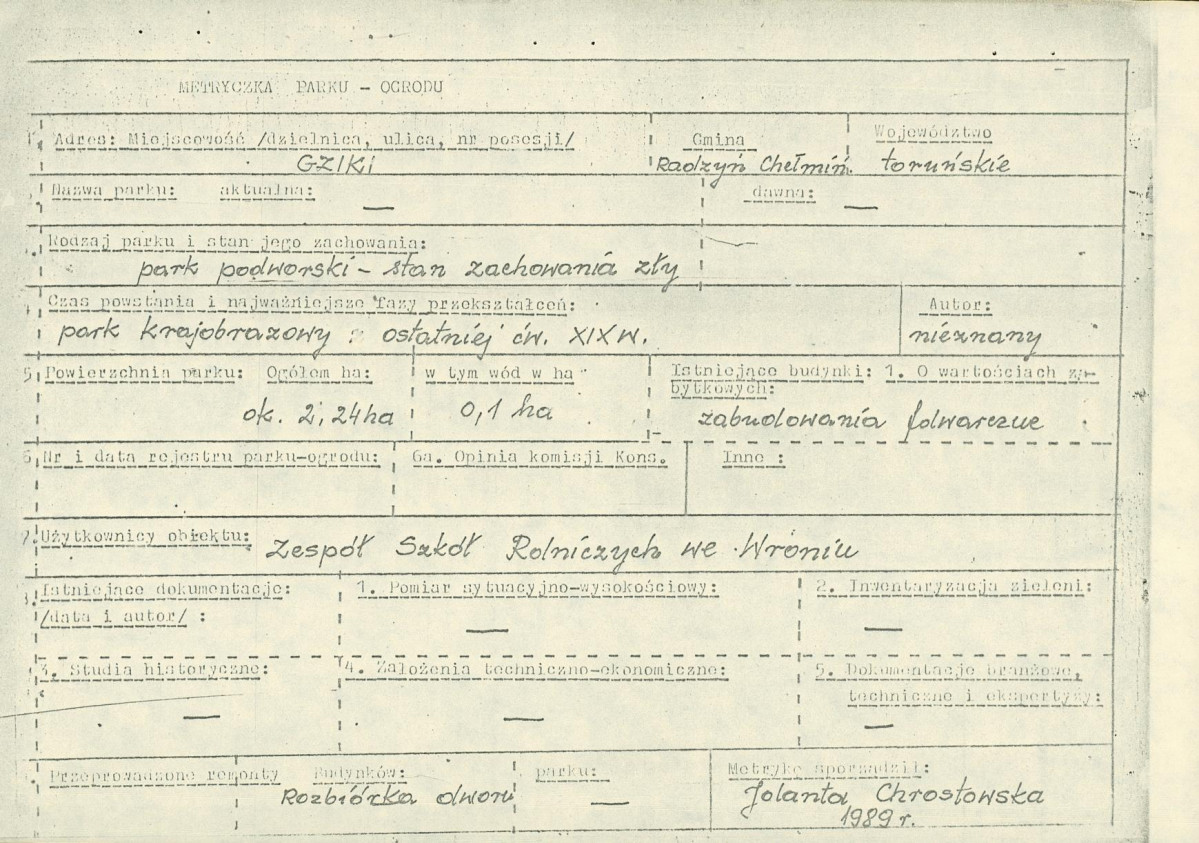 METRYCZKA PARKU - OGRODU
Adres: Miejscowość /dzielnica, ulica, nr posesji/ Gmina Województwo
GZIKI Radzyń Chełmiń. toruńskie
Nazwa parku: aktualna: — dawna: —
Rodzaj parku i stan jego zachowania:
park podworski - stan zachowania zły
Czas powstania i najważniejsze fazy przekształceń: Autor:
park krajobrazowy : ostatniej ćw. XIX w. nieznany
5. Powierzchnia parku: Ogółem ha: w tym wód w ha Istniejące budynki: 1. O wartościach za-
bytkowych:
ok. 2,24 ha 0,1 ha zabudowania folwarczne
6. Nr i data rejestru parku-ogrodu: 6a. Opinia komisji Kons. Inne :
7. Użytkownicy obiektu: Zespół Szkół Rolniczych we Wroniu
8. Istniejące dokumentacje: 1. Pomiar sytuacyjno-wysokościowy: 2. Inwentaryzacja zieleni:
/data i autor/ : — —
3. Studia historyczne: 4. Założenia techniczno-ekonomiczne: 5. Dokumentacje branżowe,
techniczne i ekspertyzy:
— — —
Przeprowadzone remonty Budynków: parku: Metrykę sporządził:
Rozbiórka dworu — Jolanta Chrostowska
1989 r.